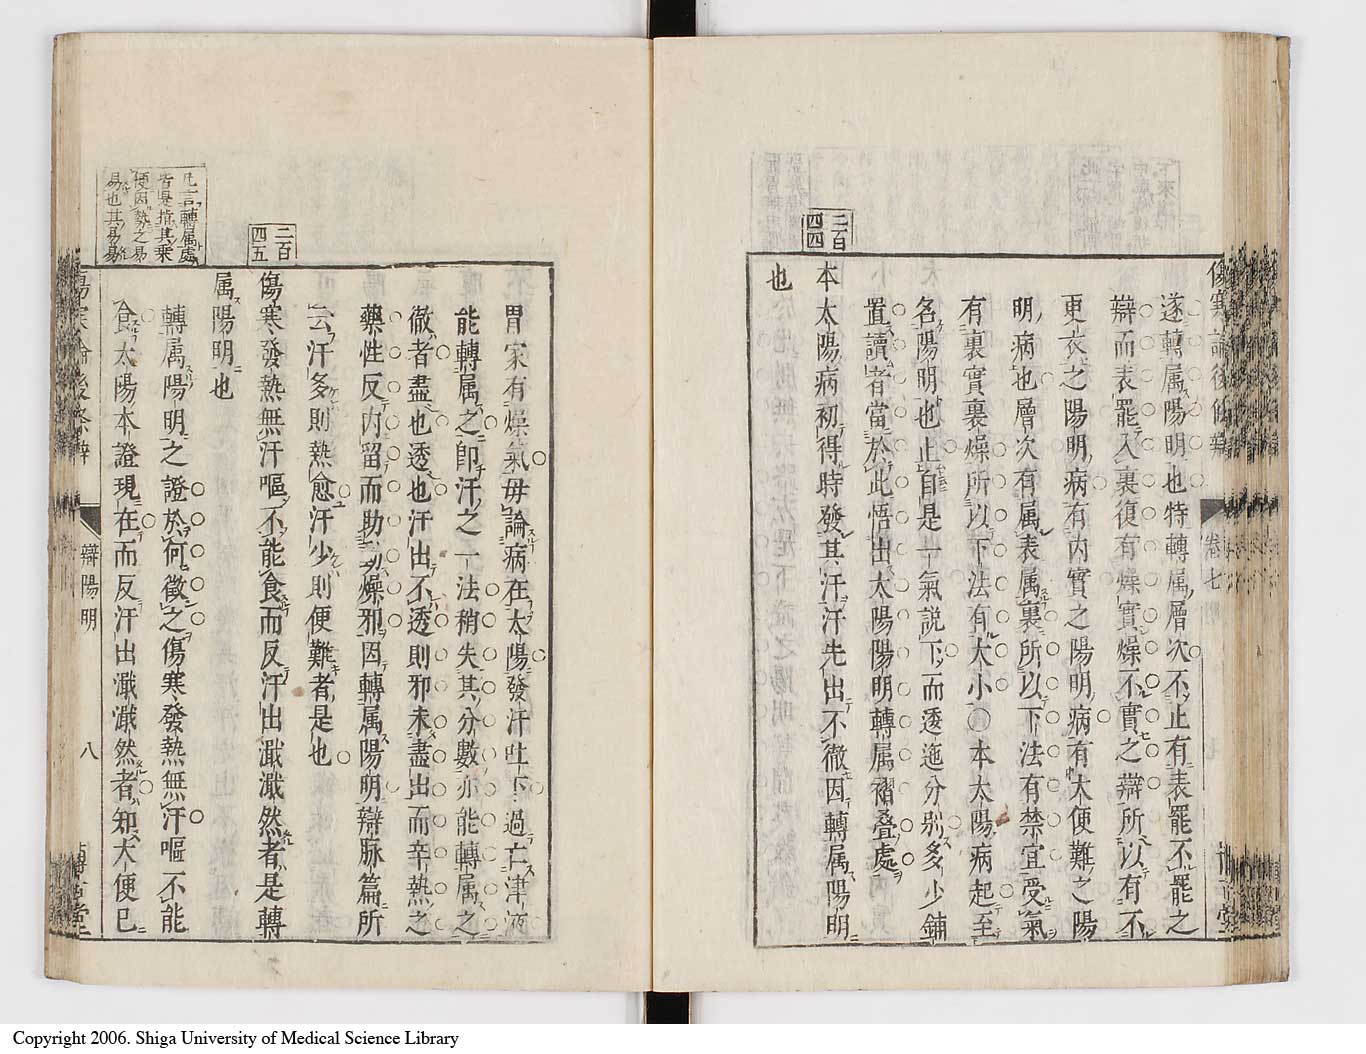 遂轉属陽明也特轉属層次不止有表罷不罷之
辯而表罷入裏復有燥實燥不實之辯所以有不
更衣之陽明病有内實之陽明病有大便難之陽
明病也層次有属表属裏所以下法有禁宜受氣
有裏實裏燥所以下法有大小〇本太陽病起至
各陽明也止自是一氣説下而透迤分别多少鋪
置讀者當於此悟出太陽陽明轉属褶叠處
二百四四
本太陽病初得時發其汗汗先出不徹因轉属陽明
也
胃家有燥氣毋論病在太陽發汗吐下過亡津液
能轉属之卽汗之一法稍失其分數亦能轉属之
徹者盡也透也汗出不透則邪未盡出而辛熱之
藥性反内留而助燥邪因轉属陽明辯脉篇所
云汗多則熱愈汗少則便難者是也
二百四五
傷寒發熱無汗嘔不能食而反汗出濈濈然者是轉
属陽明也
凡言轉属處
皆是揹其乘
便因勢之易
易也其易易
轉属陽明之證於何徵之傷寒發熱無汗嘔不能
食太陽本證現在而反汗出濈濈然者知大便已
傷寒論後條辯
辯陽明
八
卷七
Copyright 2006. Shiga University of Medical Science Library